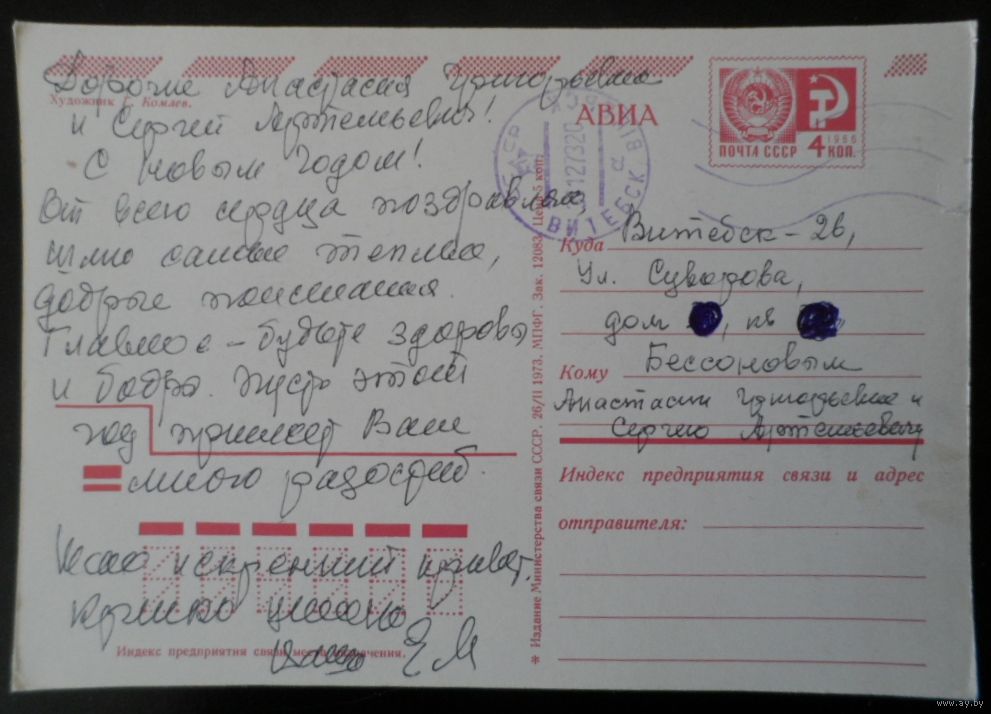 Дорогие Анастасия Григорьевна
Художник Г. Комлев.
и Сергей Артемьевич!
С Новым годом!
От всего сердца поздравляю,
шлю самые теплые,
добрые пожелания.
Главное – будьте здоровы
и бодры. Пусть этот
год принесет Вам
много радостей.
Шлю искренний привет,
Крепко целую
Ваша ЕМ
Индекс предприятия связи места назначения.
* Издание Министерства связи СССР. 26/II 1973. МПФГ. Зак. 12083. Цена 5 коп.
АВИА
ПОЧТА СССР
1966
4 КОП.
ВИТЕБСК
Куда Витебск – 26,
ул. Суворова,
дом , кв
Кому Бессоновым
Анастасии Григорьевне и
Сергею Артемьевичу
Индекс предприятия связи и адрес
отправителя:
www.ay.by